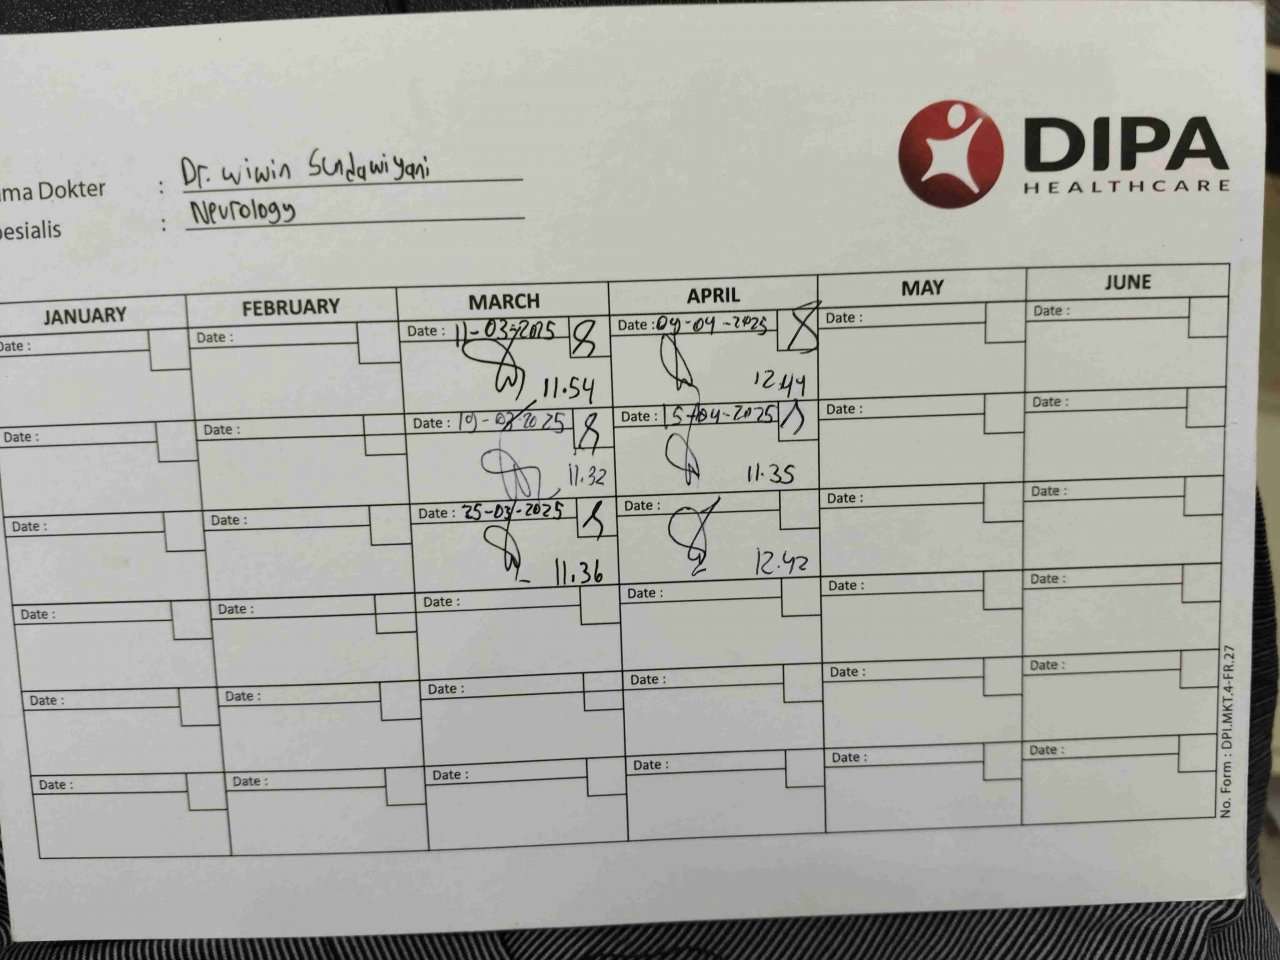 DIPA
HEALTHCARE
ma Dokter : Dr. Wiwin Sundawiyani
esialis : Neurology
JANUARY FEBRUARY MARCH APRIL MAY JUNE
Date : Date : Date : 11-03-2025 8 Date : 09-04-2025 8 Date : Date :
11.54 12.44
Date : Date : Date : 19-03-2025 8 Date : 15-04-2025 Date : Date :
11.32 11.35
Date : Date : Date : 25-03-2025 Date : Date : Date :
11.36 12.42
Date : Date : Date : Date : Date : Date :
Date : Date : Date : Date : Date : Date :
Date : Date : Date : Date : Date : Date :
No. Form : DPI.MKT.4-FR.27